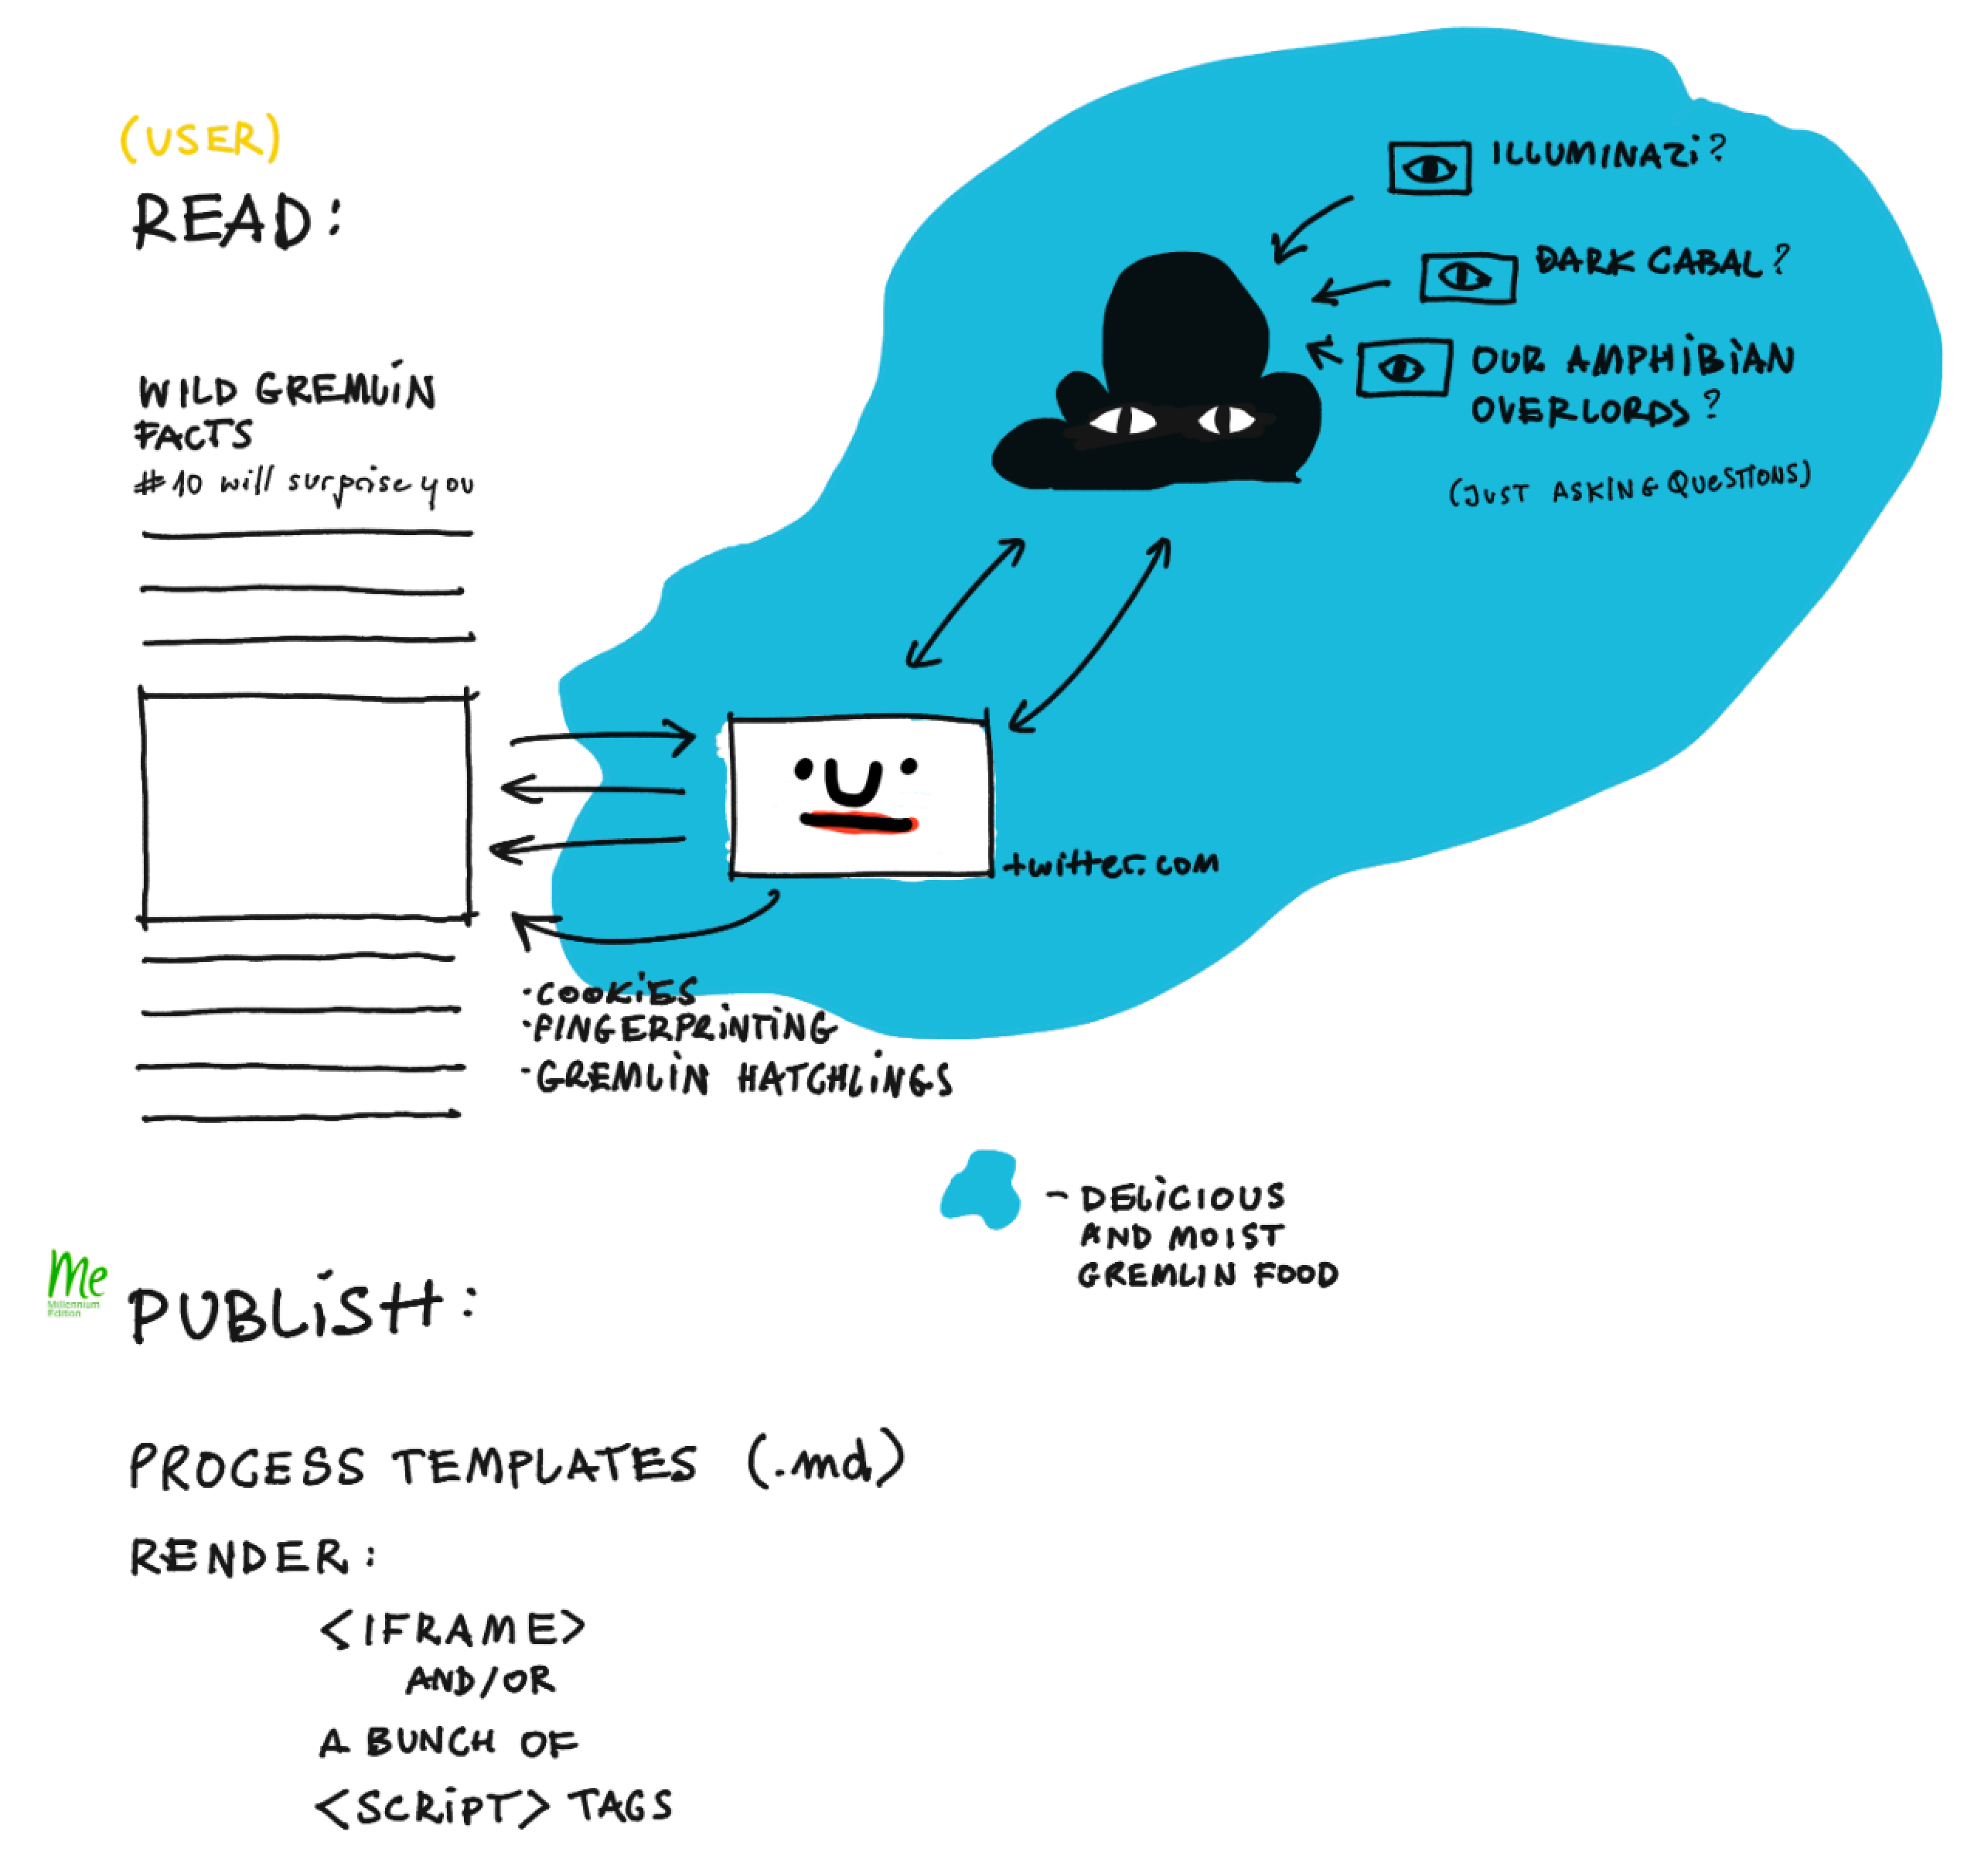 (USER)
READ:
WILD GREMLIN
FACTS
#10 will surprise you
ILLUMINAZI?
DARK CABAL?
OUR AMPHIBIAN
OVERLORDS?
(JUST ASKING QUESTIONS)
twitter.com
·COOKIES
·FINGERPRINTING
·GREMLIN HATCHLINGS
- DELICIOUS
AND MOIST
GREMLIN FOOD
Me
Millennium
Edition
PUBLISH:
PROCESS TEMPLATES (.md)
RENDER:
<IFRAME>
AND/OR
A BUNCH OF
<SCRIPT> TAGS